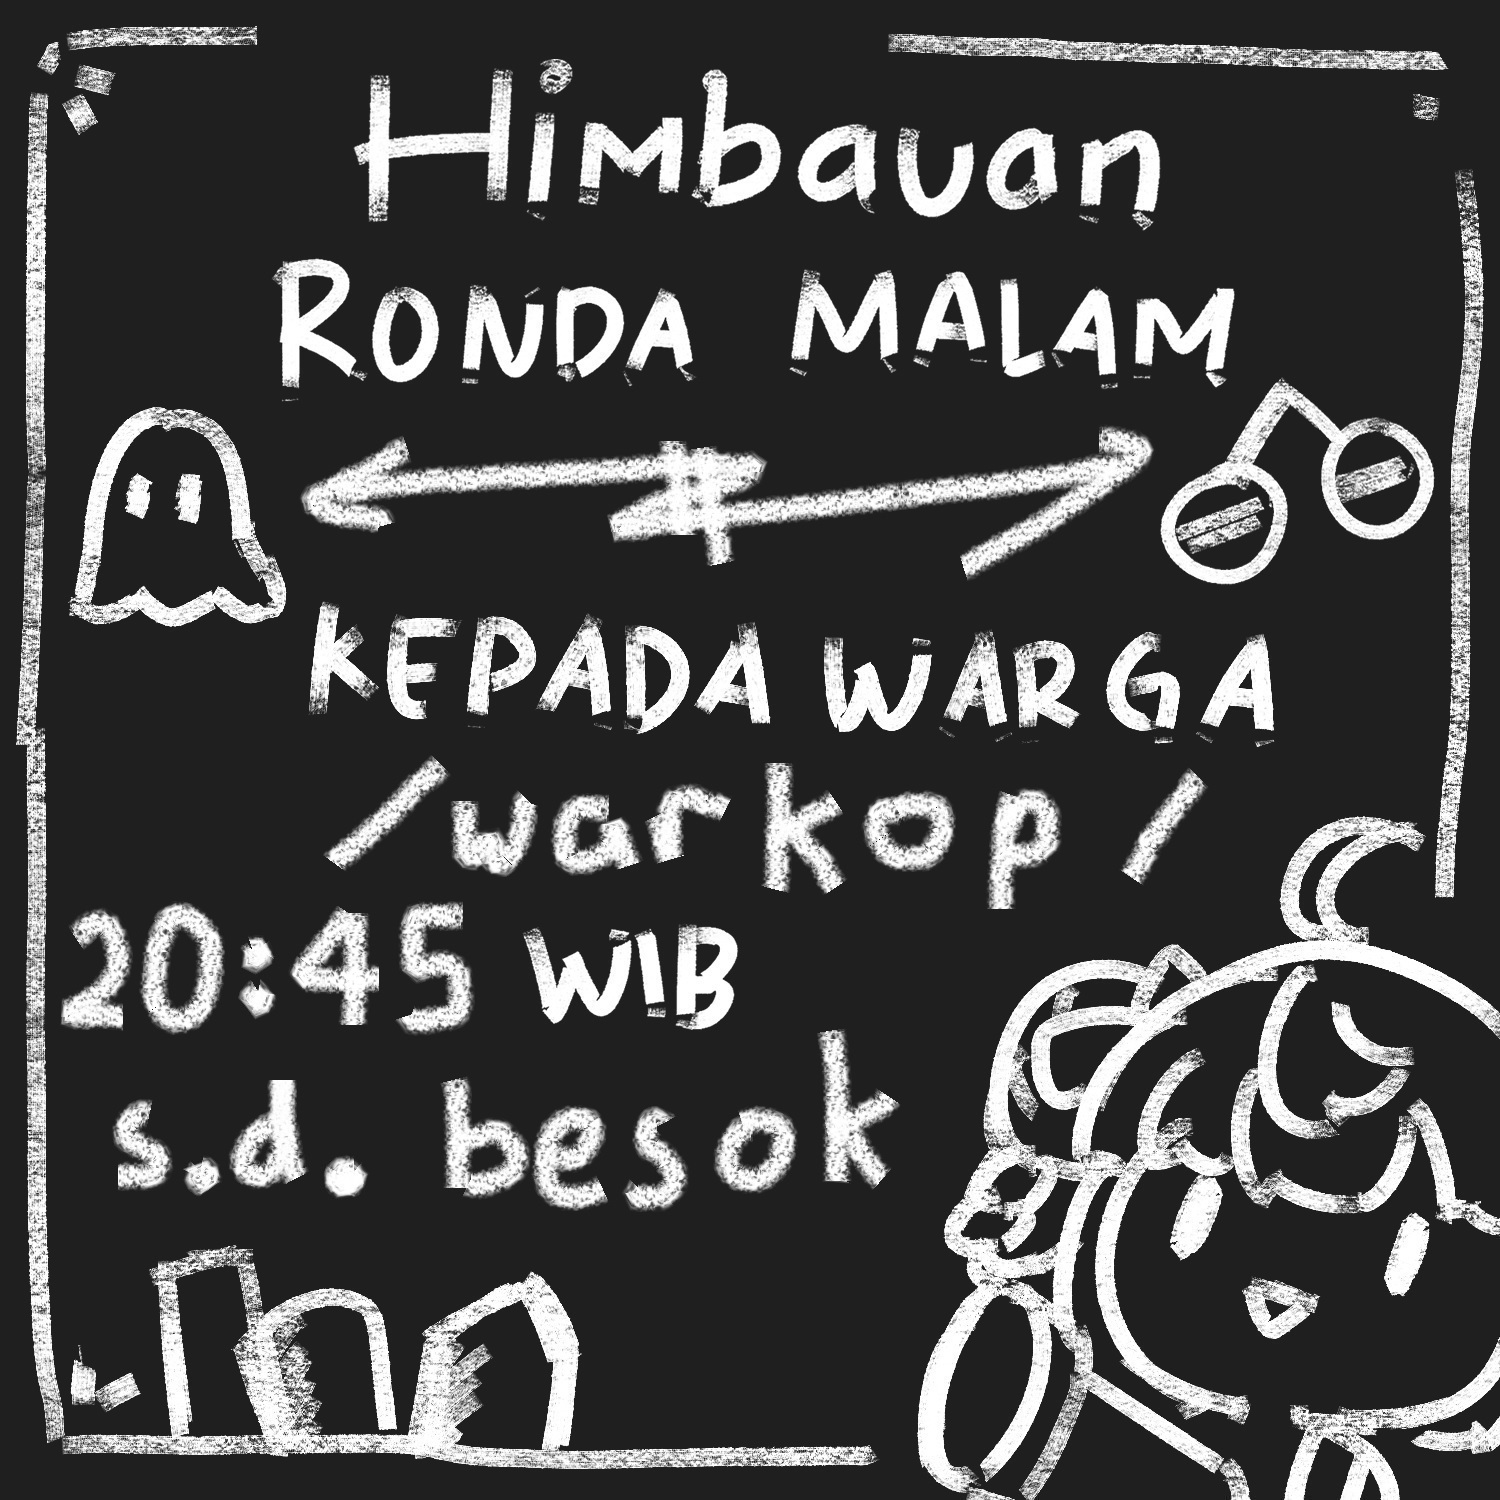 Himbauan
RONDA MALAM
KEPADA WARGA
/warkop/
20:45 WIB
s.d. besok